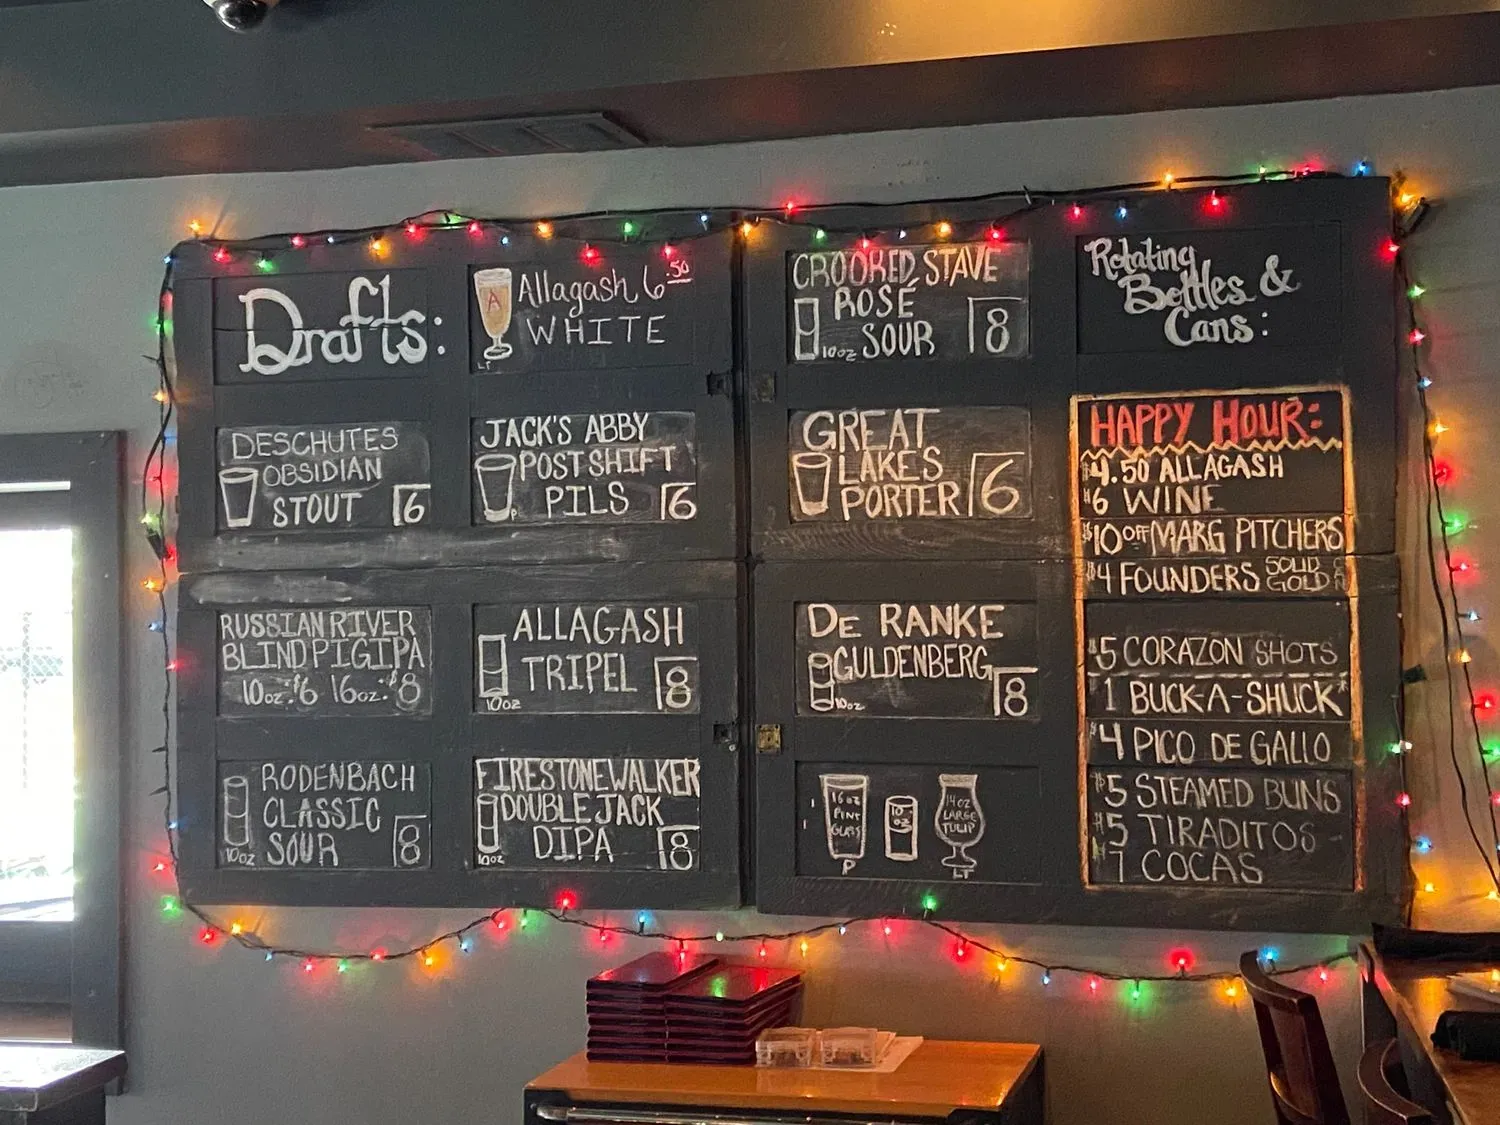 Drafts:
DESCHUTES
OBSIDIAN
STOUT 6
RUSSIAN RIVER
BLIND PIG IPA
10oz:$6 16oz:$8
RODENBACH
CLASSIC
SOUR 8
10oz
A
Allagash 6.50
WHITE
LT
JACK'S ABBY
POST SHIFT
PILS 6
P
ALLAGASH
TRIPEL 8
10oz
FIRESTONEWALKER
DOUBLE JACK
DIPA 8
10oz
CROOKED STAVE
ROSÉ
SOUR 8
10oz
GREAT
LAKES
PORTER 6
DE RANKE
GULDENBERG
8
10oz
16oz
PINT
GLASS
P
10
oz
14oz
LARGE
TULIP
LT
Rotating
Bottles &
Cans:
HAPPY HOUR:
$4.50 ALLAGASH
$6 WINE
$10 OFF MARG PITCHERS
$4 FOUNDERS SOLID
GOLD
$5 CORAZON SHOTS
1 BUCK-A-SHUCK*
$4 PICO DE GALLO
$5 STEAMED BUNS
$5 TIRADITOS
$7 COCAS